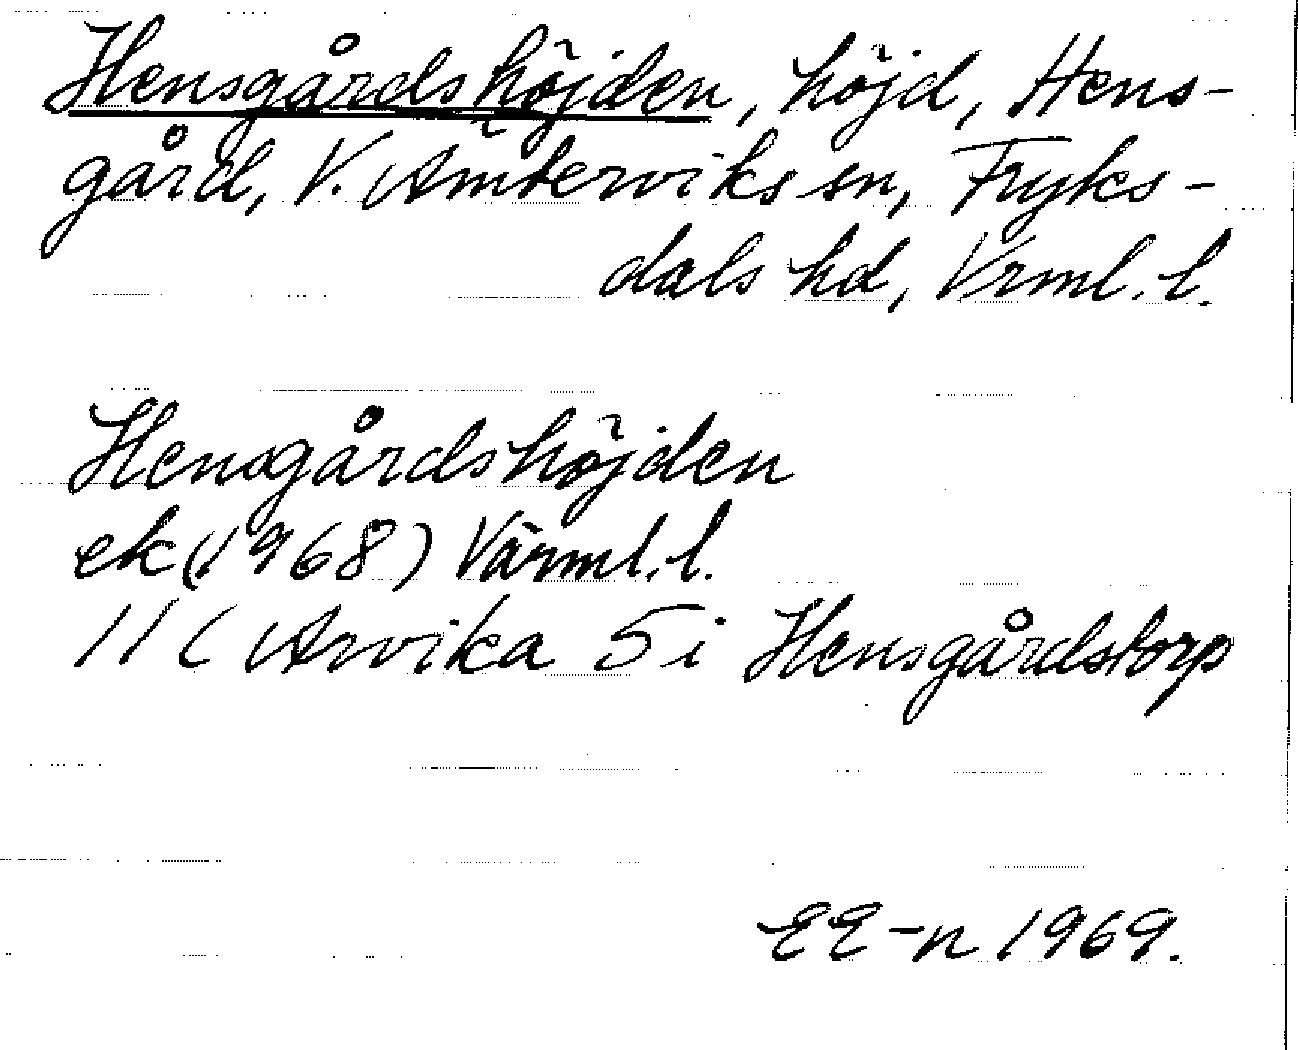 Hensgårdshöjden, höjd, Hens-
gård, V. Ämterviks sn, Fryks-
dals hd, Vrml. l.
Hensgårdshöjden
ek (1968) Värml. l.
11C Arvika 5i Hensgårdstorp
EE-n 1969.